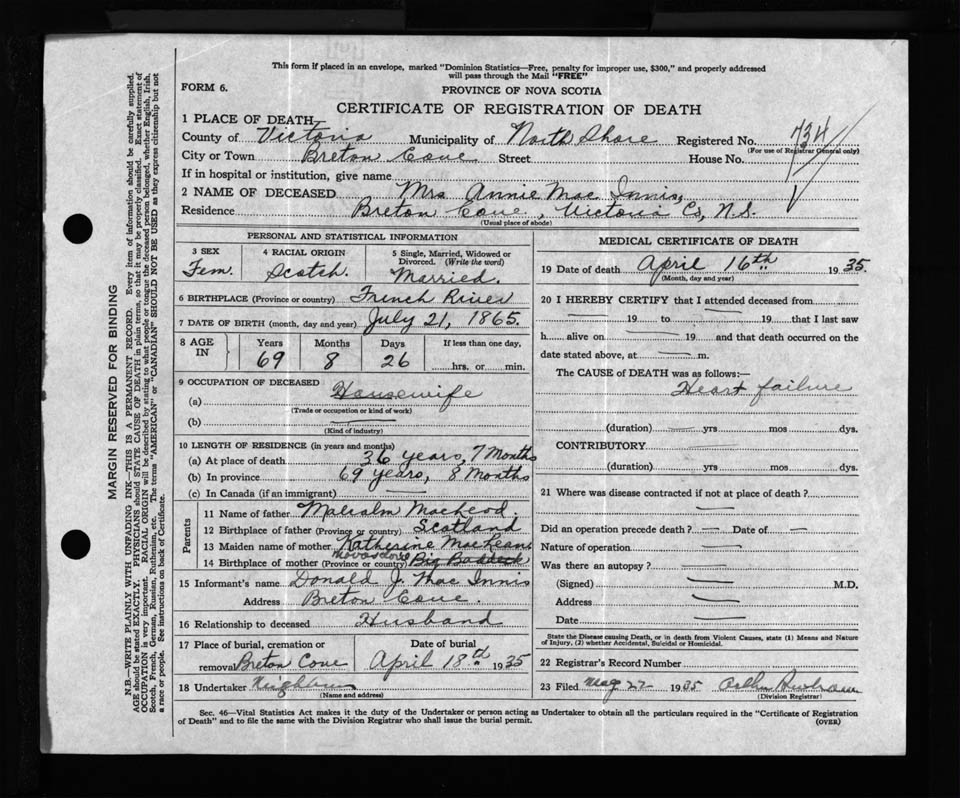 This form if placed in an envelope, marked "Dominion Statistics—Free, penalty for improper use, $300," and properly addressed
will pass through the Mail "FREE"
FORM 6.
PROVINCE OF NOVA SCOTIA
CERTIFICATE OF REGISTRATION OF DEATH
1 PLACE OF DEATH
County of Victoria Municipality of North Shore Registered No. 734
(For use of Registrar General only)
City or Town Breton Cove Street House No.
If in hospital or institution, give name
2 NAME OF DECEASED Mrs Annie Mac Innis,
Residence Breton Cove, Victoria Co, N.S.
(Usual place of abode)
PERSONAL AND STATISTICAL INFORMATION
3 SEX 4 RACIAL ORIGIN 5 Single, Married, Widowed or
Divorced. (Write the word)
Fem. Scotch. Married.
6 BIRTHPLACE (Province or country) French River
7 DATE OF BIRTH (month, day and year) July 21, 1865.
8 AGE IN Years Months Days If less than one day,
69 8 26 hrs. or min.
9 OCCUPATION OF DECEASED
(a) Housewife
(Trade or occupation or kind of work)
(b) —
(Kind of industry)
10 LENGTH OF RESIDENCE (in years and months)
(a) At place of death 36 years, 7 Months
(b) In province 69 years, 8 Months
(c) In Canada (if an immigrant) —
Parents
11 Name of father Malcolm MacLeod.
12 Birthplace of father (Province or country) Scotland
13 Maiden name of mother Katherine MacLean
14 Birthplace of mother (Province or country)
15 Informant's name Donald J. Mac Innis
Address Breton Cove.
16 Relationship to deceased Husband
17 Place of burial, cremation or Date of burial
removal Breton Cove April 18th 1935
18 Undertaker Neighbours
(Name and address)
MEDICAL CERTIFICATE OF DEATH
19 Date of death April 16th 1935.
(Month, day and year)
20 I HEREBY CERTIFY that I attended deceased from
— 19 to — 19 that I last saw
h alive on — 19 and that death occurred on the
date stated above, at — m.
The CAUSE of DEATH was as follows:—
Heart failure
(duration) — yrs — mos — dys.
CONTRIBUTORY —
(duration) — yrs — mos — dys.
21 Where was disease contracted if not at place of death? —
Did an operation precede death? — Date of —
Nature of operation —
Was there an autopsy? —
(Signed) — M.D.
Address —
Date —
State the Disease causing Death, or in death from Violent Causes, state (1) Means and Nature
of Injury, (2) whether Accidental, Suicidal or Homicidal.
22 Registrar's Record Number
23 Filed May 27 1935
(Division Registrar)
Sec. 46—Vital Statistics Act makes it the duty of the Undertaker or person acting as Undertaker to obtain all the particulars required in the "Certificate of Registration
of Death" and to file the same with the Division Registrar who shall issue the burial permit.
(OVER)
MARGIN RESERVED FOR BINDING
N.B.—WRITE PLAINLY WITH UNFADING INK—THIS IS A PERMANENT RECORD. Every item of information should be carefully supplied.
AGE should be stated EXACTLY. PHYSICIANS should STATE CAUSE OF DEATH in plain terms, so that it may be properly classified. Exact statement of
OCCUPATION is very important. RACIAL ORIGIN will be described by stating to what people or tongue the deceased person belonged, whether English, Irish,
Scotch, French, German, Russian, Ruthenian, etc. The terms "AMERICAN" or "CANADIAN" SHOULD NOT BE USED as they express citizenship but not
a race or people. See instructions on back of Certificate.